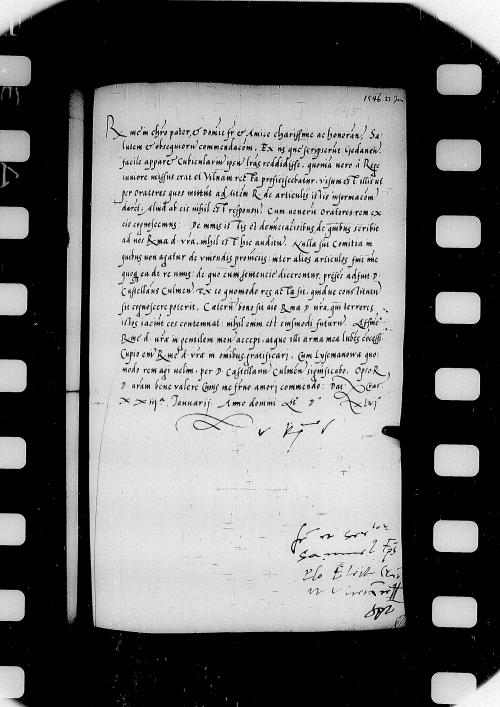 1546 23 Jan
Rme in chro pater, & Domine fr & Amice charissime ac honoran. Sa-
lutem & obsequioru commendaco͞m. Ex iis que scripserut Gedanen
facile apparet Cubicularium ipsu lras reddidisse, quonia vero à Rege
iuniore missus erat et Vilnam rect ta proficiscebatur, visum est illis ut
per oratores quos mittut ad
R. de articulis istis informacom
daret: Aliud ab eis nihil est responsu. Cum venerit Oratores rem ex
eis cognoscemus. De minis istis et denunciacionibus de quibus scribit
ad nos Rma d. vra, nihil est hic auditu. Nulla sut Comitia in
quibus non agatur de uniendis provinciis: inter alios articulos fuit inc
quoq ea de re unus: de quo cum sentencie dicerentur, preses adfuit D.
Castellanus Culmen. Ex eo quomodo res acta sit, quidve constitutu
sit cognoscere poterit. Caterum bono sit aio Rma D. vra, qui terrores
istos faciut eos contemnat: nihil enim est eiusmodi futuru.
Rme d. vra in gentilem meu accept. atque illi arma mea lubes cocessi.
Cupio em Rme d. vra in omibus gratificari. Cum Lysemanowa quo-
modo rem agi velim, per D. Castellanu Culmen significabo. Opto R
D. vram bene valere Cuius me frno amori commendo. Dat
XXiii a. Januarij. Anno domini D Xlvi
fr et
Samuel Eps